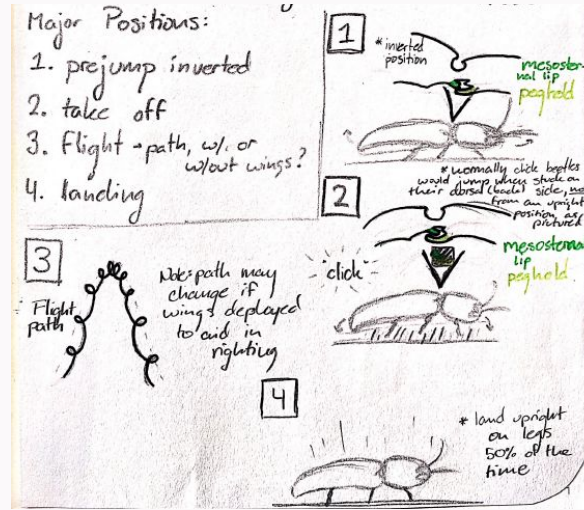 Major Positions:
1. prejump inverted
2. take off
3. Flight - path, w/. or
w/out wings?
4. landing
1
* inverted
position
mesoster-
nal lip
peghold
* normally click beetles
would jump when stuck on
their dorsal (back) side, not
from an upright
position, as
pictured
2
click
mesosternal
lip
peghold
3
Flight
path
Note: path may
change if
wings deployed
to aid in
righting
4
* land upright
on legs
50% of the
time